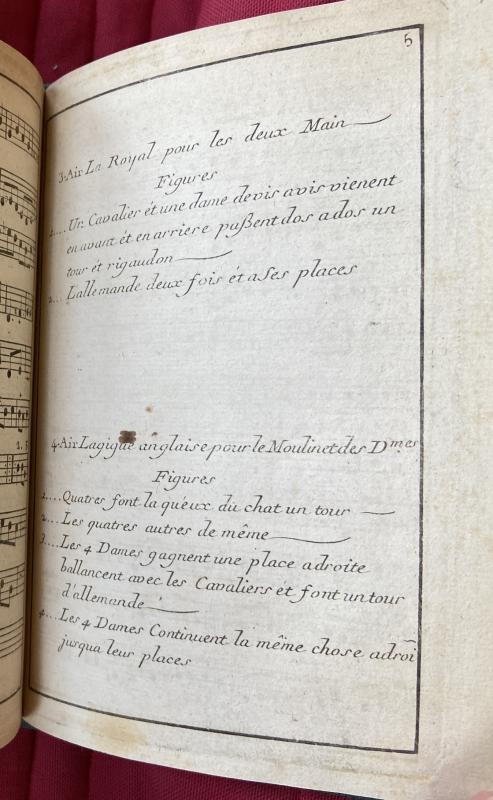 5
3. Air La Royal pour les deux Main
Figures
1.... Un Cavalier ét une dame devis avis vienent
en avant ét en arriere paßent dos a dos un
tour ét rigaudon
2... Lallemande deux fois ét a ses places
4. Air Lagigue anglaise pour le Moulinet des Dmes
Figures
1.... Quatres font la quéux dü chat un tour
2.... Les quatres autres de même
3.... Les 4 Dames gagnent une place a droite
ballancent avec les Cavaliers ét font un tour
d'allemande
4... Les 4 Dames Continuent la même chose adroi
jusqua leur places